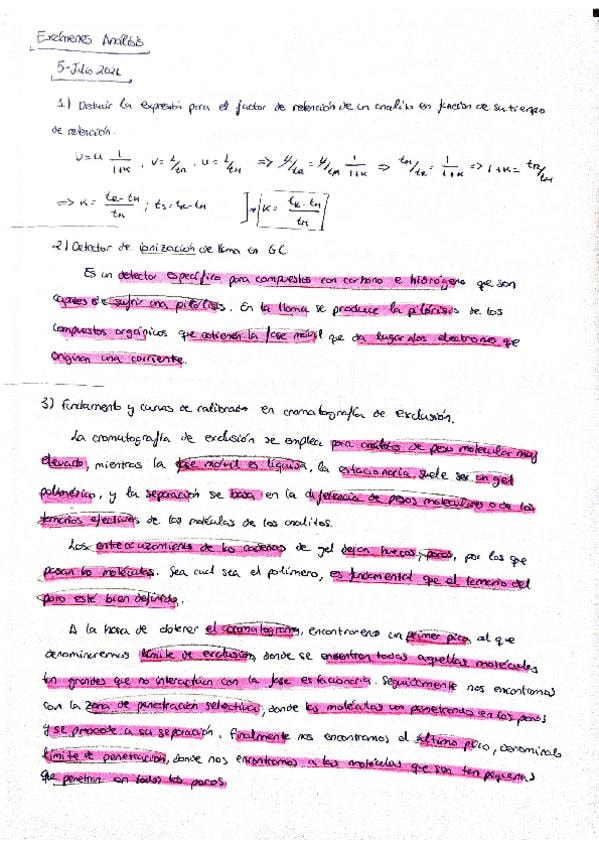 Exámenes Análisis
5-Julio 2021
1) Deducir la expresión para el factor de retención de un analito en función de su tiempo
de retención.
v = u 1/(1+K) , v = L/tR , u = L/tM => L/tR = L/tM 1/(1+K) => tM/tR = 1/(1+K) => 1+K = tR/tM
=> K = (tR-tM)/tM ; ts = tR-tM ] → K = (tR-tM)/tM
2) Detector de ionización de llama en GC
Es un detector específico para compuestos con carbono e hidrógeno que son
capaces de sufrir una pilólisis. En la llama se produce la pilórisis de los
compuestos orgánicos que contienen la fase móvil que da lugar a los electrones que
originan una corriente.
3) Fundamento y curvas de calibrado en cromatografía de exclusión.
La cromatografía de exclusión se emplea para analitos de peso molecular muy
elevado, mientras la fase móvil es líquida, la estacionaria suele ser un gel
polimérico, y la separación se basa en la diferencia de pesos moleculares o de los
tamaños efectivos de las moléculas de los analitos.
Los entrecruzamientos de las cadenas de gel dejan huecos, poros, por los que
pasan las moléculas. Sea cual sea el polímero, es fundamental que el tamaño del
poro esté bien definido.
A la hora de obtener el cromatograma, encontraremos un primer pico al que
denominaremos límite de exclusión, donde se encuentran todas aquellas moléculas
tan grandes que no interactúan con la fase estacionaria. Seguidamente nos encontramos
con la zona de penetración selectiva, donde las moléculas van penetrando en los poros
y se procede a su separación. Finalmente nos encontramos el último pico, denominado
límite de penetración, donde nos encontramos a las moléculas que son tan pequeñas
que penetran en todos los poros.